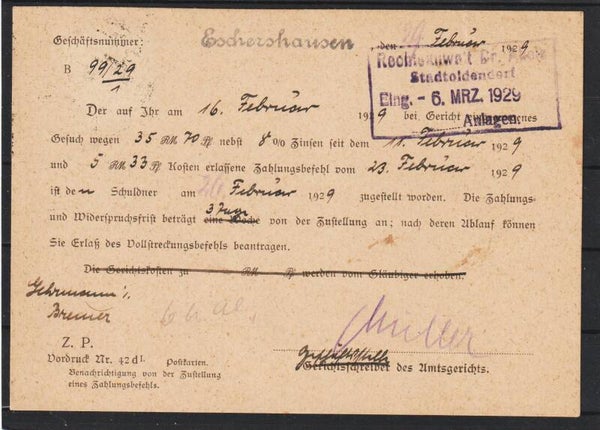 Geschäftsnummer:
Eschershausen
den 29 Februar 1929
B 99/29
1
Rechtsanwalt Dr.
Stadtoldendorf
Eing. - 6. MRZ. 1929
Anlagen.
Der auf Ihr am 16. Februar 1929 bei Gericht eingegangenes
Gesuch wegen 35 RM 70 Pf nebst 8 0/0 Zinsen seit dem 11. Februar 1929
und 5 RM 33 Pf Kosten erlassene Zahlungsbefehl vom 23. Februar 1929
ist den Schuldner am 26 Februar 1929 zugestellt worden. Die Zahlungs-
und Widerspruchsfrist beträgt eine Woche 3 Tage von der Zustellung an; nach deren Ablauf können
Sie Erlaß des Vollstreckungsbefehls beantragen.
Die Gerichtskosten zu RM Pf werden vom Gläubiger erhoben.
Gehrmann /.
Bremer
Z. P.
Vordruck Nr. 42 d I. Postkarten.
Benachrichtigung von der Zustellung
eines Zahlungsbefehls.
Müller
Geschäftsstelle
Gerichtsschreiber des Amtsgerichts.